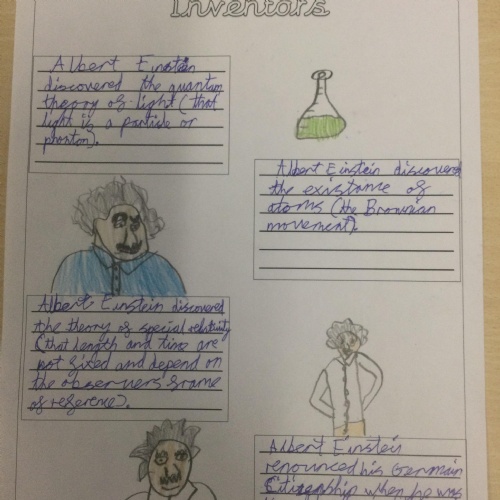 Inventors
Albert Einstein
discovered the quantum
theory of light (that
light is a particle or
photon).
Albert Einstein discovered
the existance of
atoms (the Brownian
movement).
Albert Einstein discovered
the theory of special relativity
(that length and time are
not fixed and depend on
the observers frame
of reference).
Albert Einstein
renounced his German
Citizenship when he was